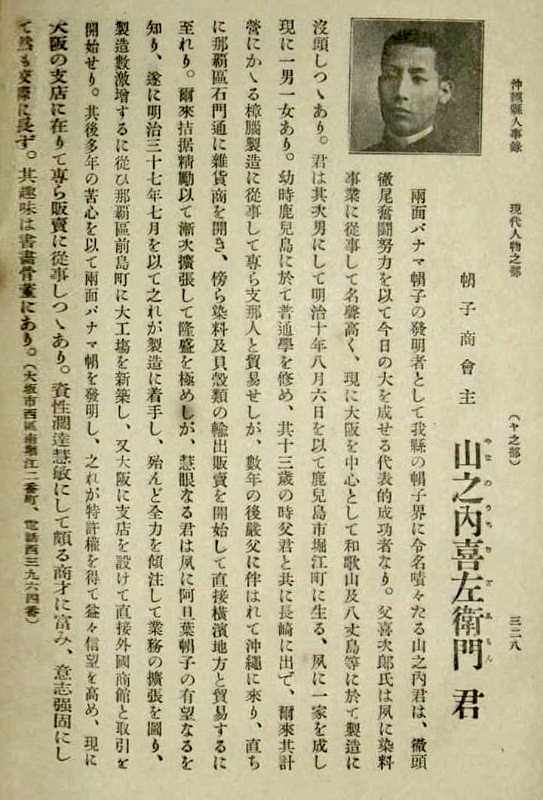 沖繩縣人事錄　現代人物之部　（ヤ之部）　三二八
帽子商會主
山之內喜左衛門君
やまのうちきざゑもん
兩面パナマ帽子の發明者として我縣の帽子界に令名嘖々たる山之內君は、徹頭
徹尾奮鬪努力を以て今日の大を成せる代表的成功者なり。父喜次郞氏は夙に染料
事業に從事して名聲高く、現に大阪を中心として和歌山及八丈島等に於て製造に
沒頭しつゝあり。君は其次男にして明治十年八月六日を以て鹿兒島市堀江町に生る、夙に一家を成し
現に一男一女あり。幼時鹿兒島に於て普通學を修め、其十三歲の時父君と共に長崎に出で、爾來其計
營にかゝる樟腦製造に從事して專ら支那人と貿易せしが、數年の後嚴父に伴はれて沖繩に來り、直ち
に那覇區石門通に雜貨商を開き、傍ら染料及貝殼類の輸出販賣を開始して直接橫濱地方と貿易するに
至れり。爾來拮据精勵以て漸次擴張して隆盛を極めしが、慧眼なる君は夙に阿旦葉帽子の有望なるを
知り、遂に明治三十七年七月を以て之れが製造に着手し、殆んど全力を傾注して業務の擴張を圖り、
製造數激增するに從ひ那覇區前島町に大工場を新築し、又大阪に支店を設けて直接外國商館と取引を
開始せり。其後多年の苦心を以て兩面パナマ帽を發明し、之れが特許權を得て益々信望を高め、現に
大阪の支店に在りて專ら販賣に從事しつゝあり。資性濶達慧敏にして頗る商才に富み、意志强固にし
て然も交際に長ず。其趣味は書畵骨董にあり。（大坂市西區南堀江二番町、電話西三九六四番）